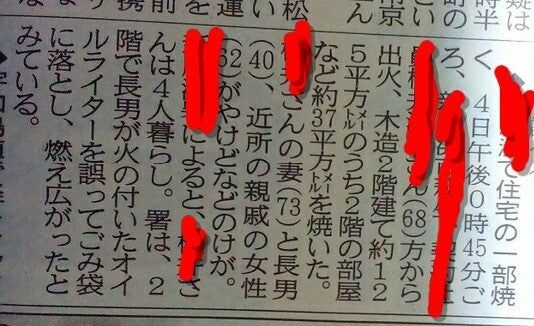 疑は
時半
町の
とい
京
松
運
前
携
で住宅の一部焼
く 4日午後0時45分ご
ろ、
さん(68)方から
出火、木造2階建て約12
5平方㍍のうち2階の部屋
など約37平方㍍を焼いた。
さんの妻(73)と長男
(40)、近所の親戚の女性
(62)がやけどなどのけが。
によると、さ
んは4人暮らし。署は、2
階で長男が火の付いたオイ
ルライターを誤ってごみ袋
に落とし、燃え広がったと
みている。